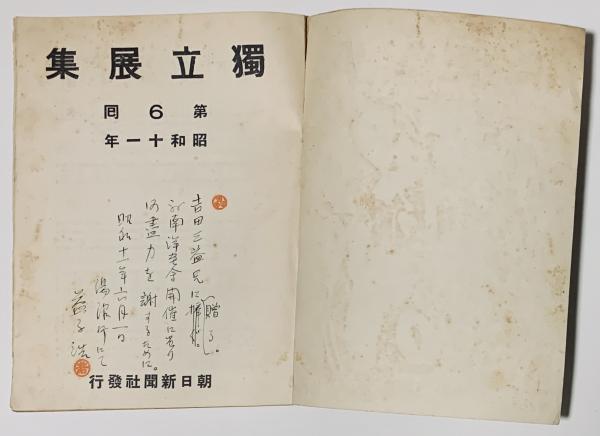 獨立展集
第6囘
昭和十一年
吉田三益兄に
贈る。
南洋会開催に
盡力を謝するために。
昭和十一年六月一日
にて
朝日新聞社發行